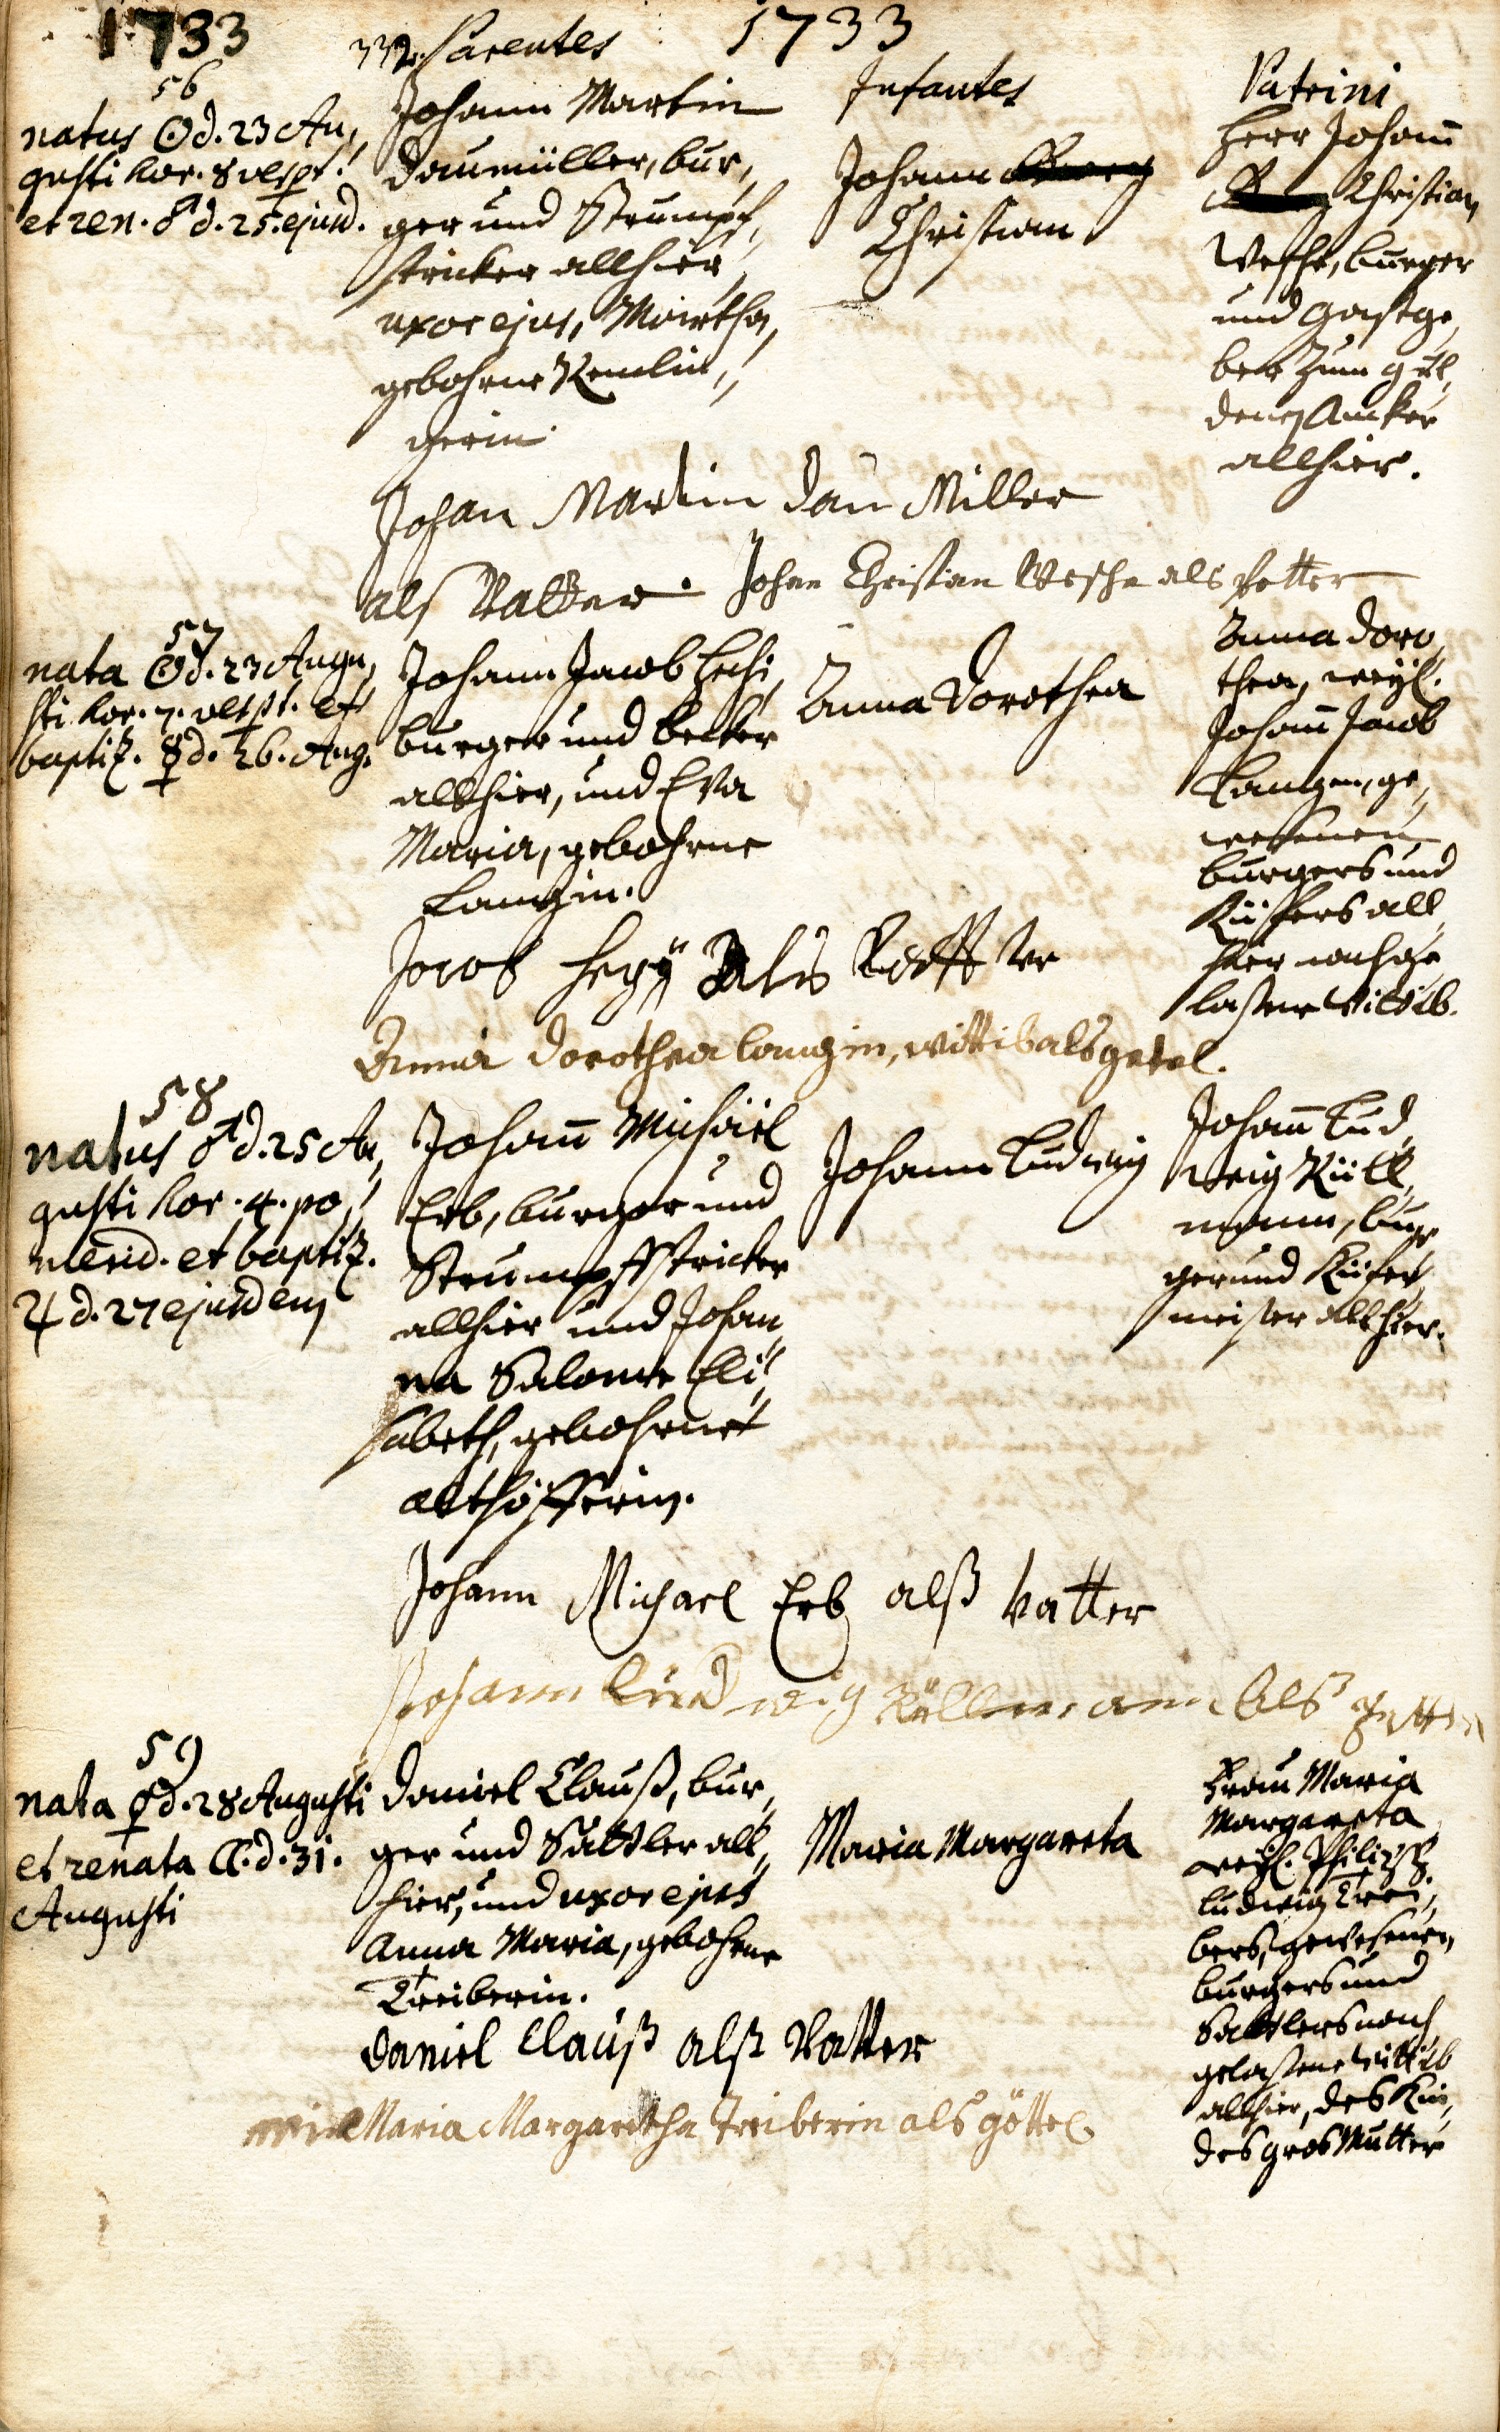 1733
332. Parentes
1733
Infantes
Patrini
56
natus ☉ d. 23 Au,
gusti hor. 8 vespt.
et ren. ♂ d. 25. ejusd.
Johann Martin
Daumüller, bur,
ger und Strumpf,
stricker allhier,
uxor ejus, Martha,
gebohrne
gerin.
Johann
Christian
Herr Johann̄
Christian
Wesche, burger
und Gastge,
ber zum gül,
denen Ancker
allhier.
Johan Martin Dau Miller
als Vatter. Johan Christian Wesche als Petter
57
nata ☉ d. 23 Augu,
sti hor. 7. vespt. et
baptiz. ☿ d. 26. Aug.
Johann Jacob
burger und becker
allhier, und Eva
Maria, gebohrne
Langin.
Anna Dorothea
Anna Doro,
thea, weyl.
Johann̄ Jacob
Langen, ge,
wesenen
burgers und
Küffers all,
hier nachge,
lassene Wittib.
Jacob als
Anna Dorothea Langin, Wittib als getel.
58
natus ♂ d. 25 Au,
gusti hor. 4. po,
merid. et baptiz.
♃ d. 27 ejusdem
Johann̄ Michäel
Erb, burger und
Strumpffstricker
allhier und Johan,
na Salome Eli,
sabeth, gebohrne
Althöfferin.
Johann Ludwig
Johann̄ Lud,
wig Küll,
mann, bur,
ger und Küfer,
meister allhier.
Johann Michael Erb alß Vatter
Johann Ludwig Küllmann Als Petter
59
nata ♀ d. 28 Augusti
et renata ☾. d. 31.
Augusti
Daniel Clauß, bur,
ger und Sattler all,
hier, und uxor ejus
Anna Maria, gebohrne
Treiberin.
Maria Margareta
Frau Maria
Margareta
weyl. Philipp
Ludwig Trei,
bers, gewesenen
burgers und
Sattlers nach
gelassene Wittib
allhier, des Kin,
des gros Mutter
Daniel Clauß alß Vatter
Maria Margaretha Treiberin als göttel